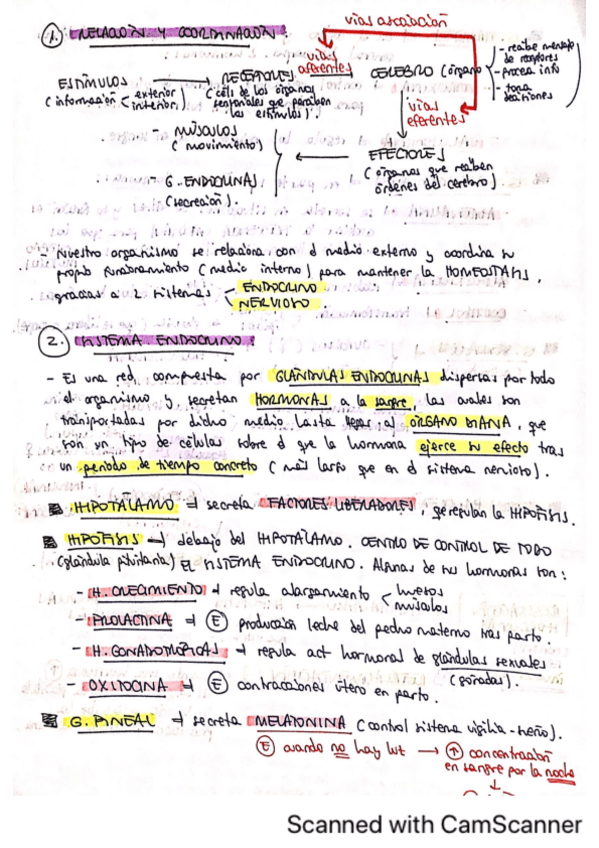 1. RELACIÓN Y COORDINACIÓN:
vías asociación
ESTÍMULOS
(información
exterior
interior)
RECEPTORES
(céls de los órganos
sensoriales que perciben
los estímulos).
vías
aferentes
CELEBRO (órgano
- recibe mensaje
de receptores
- procesa info
- toma
decisiones
vías
eferentes
EFECTORES
(órganos que reciben
órdenes del cerebro)
- MÚSCULOS
(movimiento)
G. ENDOCRINAS
(secreción).
- Nuestro organismo se relaciona con el medio externo y coordina su
propio funcionamiento (medio interno) para mantener la HOMEOSTASIS,
gracias a 2 sistemas
ENDOCRINO
NERVIOSO.
2. SISTEMA ENDOCRINO:
- Es una red compuesta por GLÁNDULAS ENDOCRINAS dispersas por todo
el organismo y secretan HORMONAS a la sangre, las cuales son
transportadas por dicho medio hasta llegar al ÓRGANO DIANA, que
son un tipo de células sobre el que la hormona ejerce su efecto tras
un período de tiempo concreto (más largo que en el sistema nervioso).
HIPOTÁLAMO → secreta FACTORES LIBERADORES, que regulan la HIPÓFISIS.
HIPÓFISIS → debajo del HIPOTÁLAMO. CENTRO DE CONTROL DE TODO
(glándula pituitaria) EL SISTEMA ENDOCRINO. Algunas de sus hormonas son:
- H. CRECIMIENTO → regula alargamiento
huesos
músculos
- PROLACTINA → E producción leche del pecho materno tras parto.
- H. GONADOTRÓPICAS → regula act hormonal de glándulas sexuales
(gónadas).
- OXITOCINA → E contracciones útero en parto.
G. PINEAL → secreta MELATONINA (control sistema vigilia-sueño).
E cuando no hay luz → ↑ concentración
en sangre por la noche
↓
Scanned with CamScanner